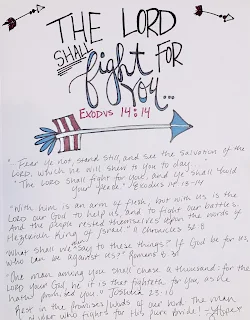 THE LORD
SHALL
fight FOR
YOU...
EXODUS 14:14
"Fear ye not, stand still, and see the salvation of the
LORD, which he will shew to you to day...
"The LORD shall fight for you, and ye shall hold
your peace." Exodus 14:13-14
"With him is an arm of flesh; but with us is the
LORD our God to help us, and to fight our battles.
And the people rested themselves upon the words of
Hezekiah king of Judah." II Chronicles 32:8
"What shall we say to these things? If God be for us,
who can be against us?" Romans 8:31
"One man among you shall chase a thousand: for the
LORD your God, he it is that fighteth for you, as he
hath promised you." Joshua 23:10
Rest in the promises/words of our King. The man
who fights for His pure bride!